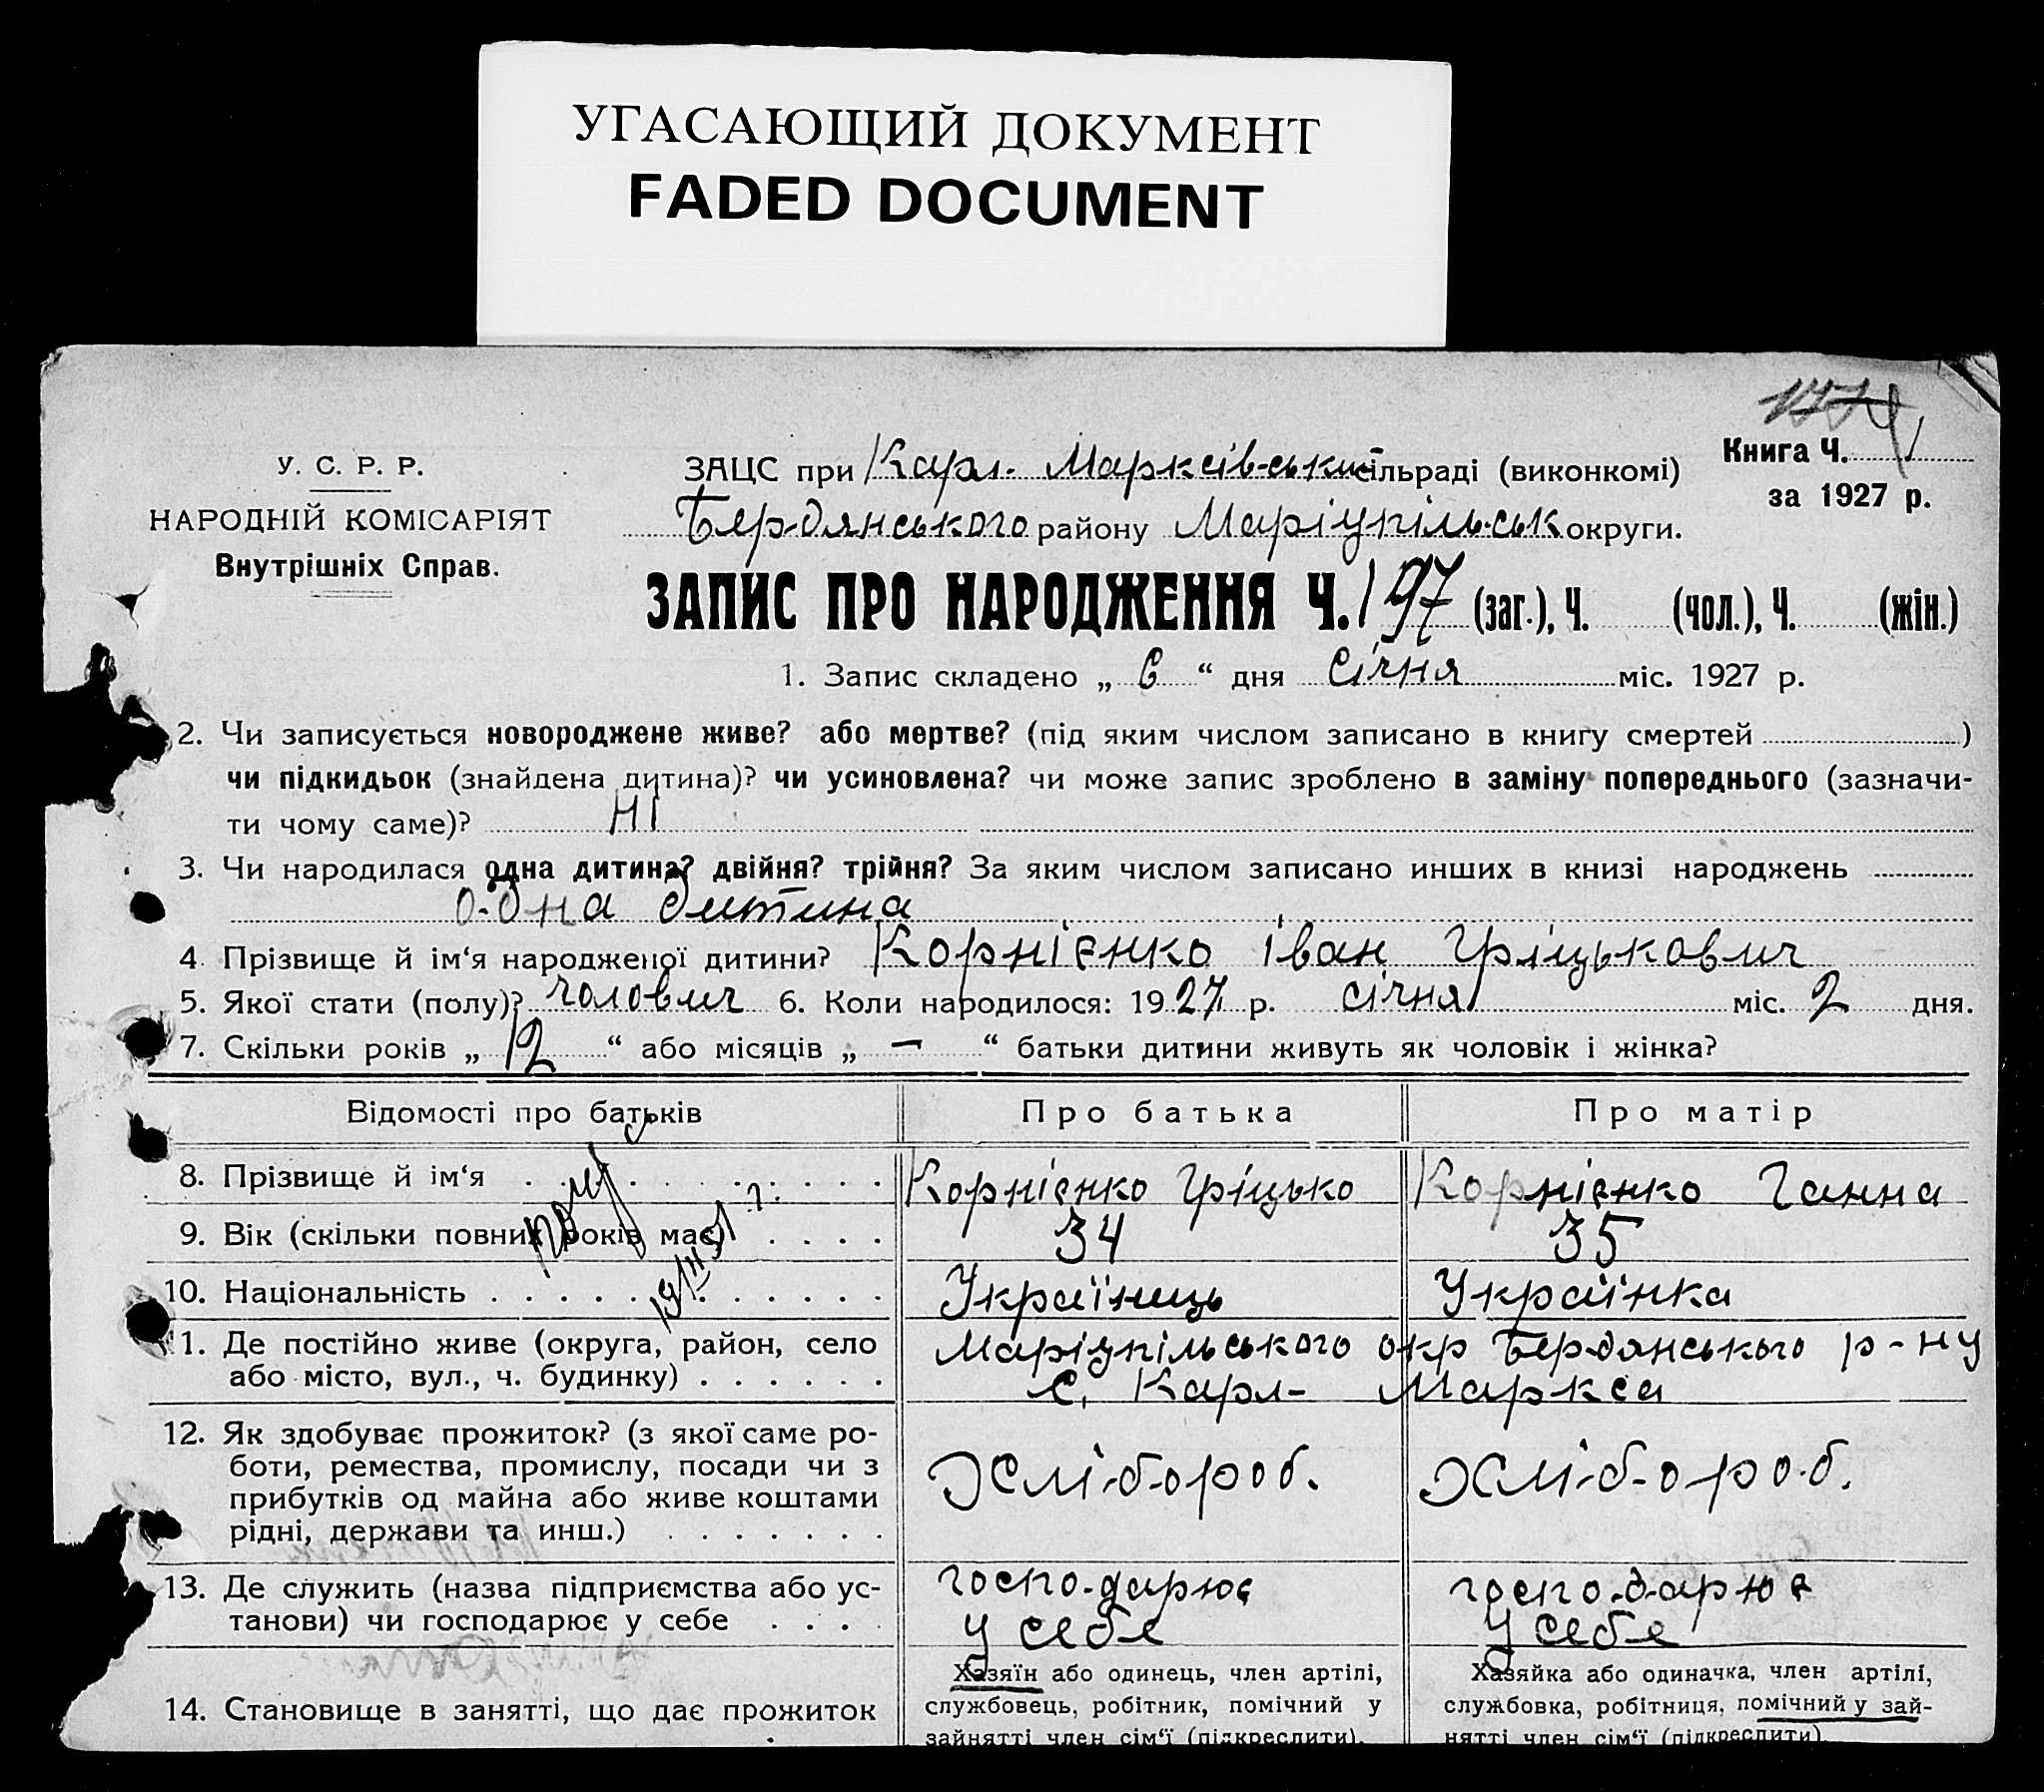 УГАСАЮЩИЙ ДОКУМЕНТ
FADED DOCUMENT
Книга Ч.
за 1927 р.
У. С. Р. Р.
НАРОДНІЙ КОМІСАРІЯТ
Внутрішніх Справ.
ЗАЦС при Карл-Марксівській сільраді (виконкомі)
Бердянського району Маріупільськ округи.
ЗАПИС ПРО НАРОДЖЕННЯ Ч. 197 (заг.), Ч. (чол.), Ч. (жін.)
1. Запис складено „ 6 “ дня січня міс. 1927 р.
2. Чи записується новороджене живе? або мертве? (під яким числом записано в книгу смертей )
чи підкидьок (знайдена дитина)? чи усиновлена? чи може запис зроблено в заміну попереднього (зазначи-
ти чому саме)? НІ
3. Чи народилася одна дитина? двійня? трійня? За яким числом записано инших в книзі народжень
одна дитина
4. Прізвище й ім‘я народженої дитини? Корнієнко Іван Гріцькович
5. Якої стати (полу)? чолович 6. Коли народилося: 1927 р. січня міс. 2 дня.
7. Скільки років „ 12 “ або місяців „ — “ батьки дитини живуть як чоловік і жінка?
Відомості про батьків Про батька Про матір
8. Прізвище й ім‘я Корнієнко Гріцько Корнієнко Ганна
9. Вік (скільки повних років має) 34 35
10. Національність Українець Українка
11. Де постійно живе (округа, район, село Маріупільського окр Бердянського р-ну
або місто, вул., ч. будинку) с. Карл-Маркса
12. Як здобуває прожиток? (з якої саме ро-
боти, ремества, промислу, посади чи з Хлібороб. Хлібороб.
прибутків од майна або живе коштами
рідні, держави та инш.)
13. Де служить (назва підприємства або ус- господарює господарює
танови) чи господарює у себе у себе у себе
Хазяїн або одинець, член артілі, Хазяйка або одиначка, член артілі,
14. Становище в занятті, що дає прожиток службовець, робітник, помічний у службовка, робітниця, помічний у зай-
зайнятті член сім‘ї (підкреслити). нятті член сім‘ї (підкреслити).